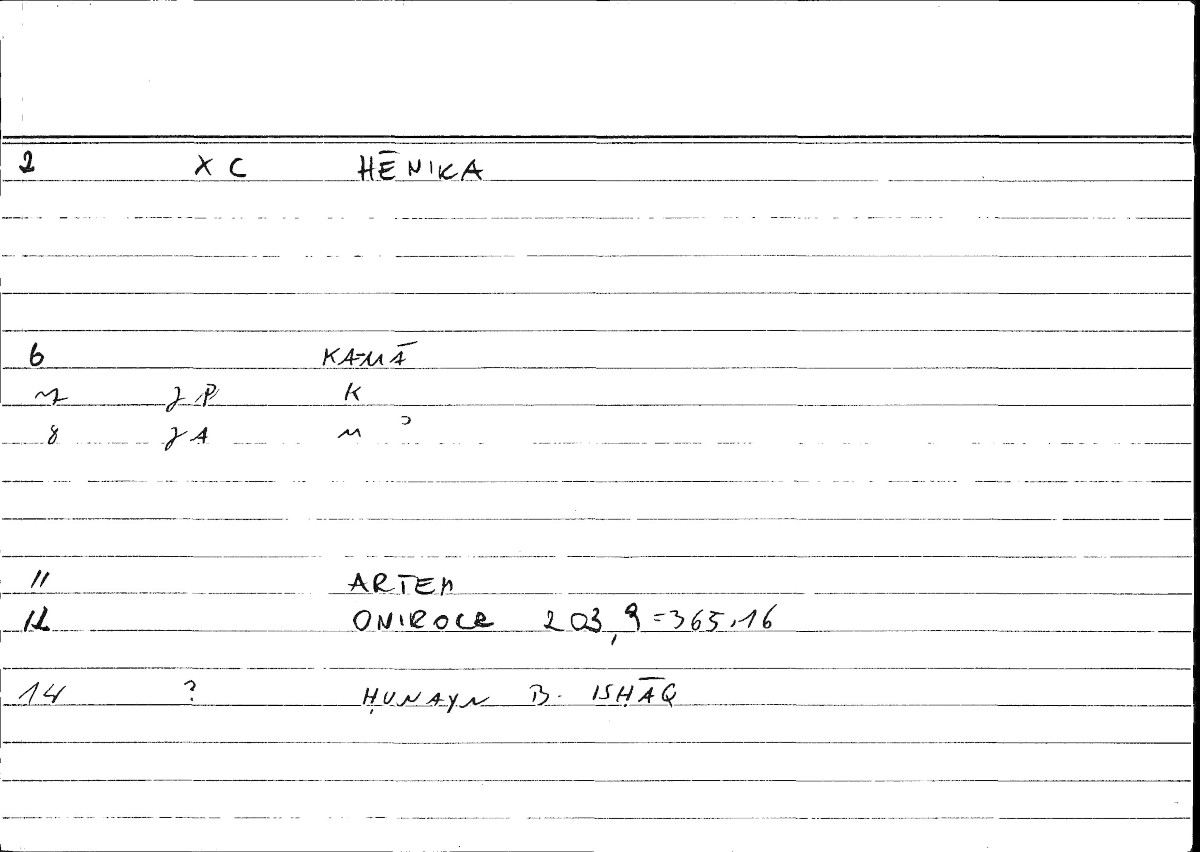 2 X C HĒNIKA
6 KA-MĀ
7 J P K
8 J A M ʾ
11 ARTEM
12 ONIROCR 203,9=365.16
14 ? ḤUNAYN B. ISḤĀQ